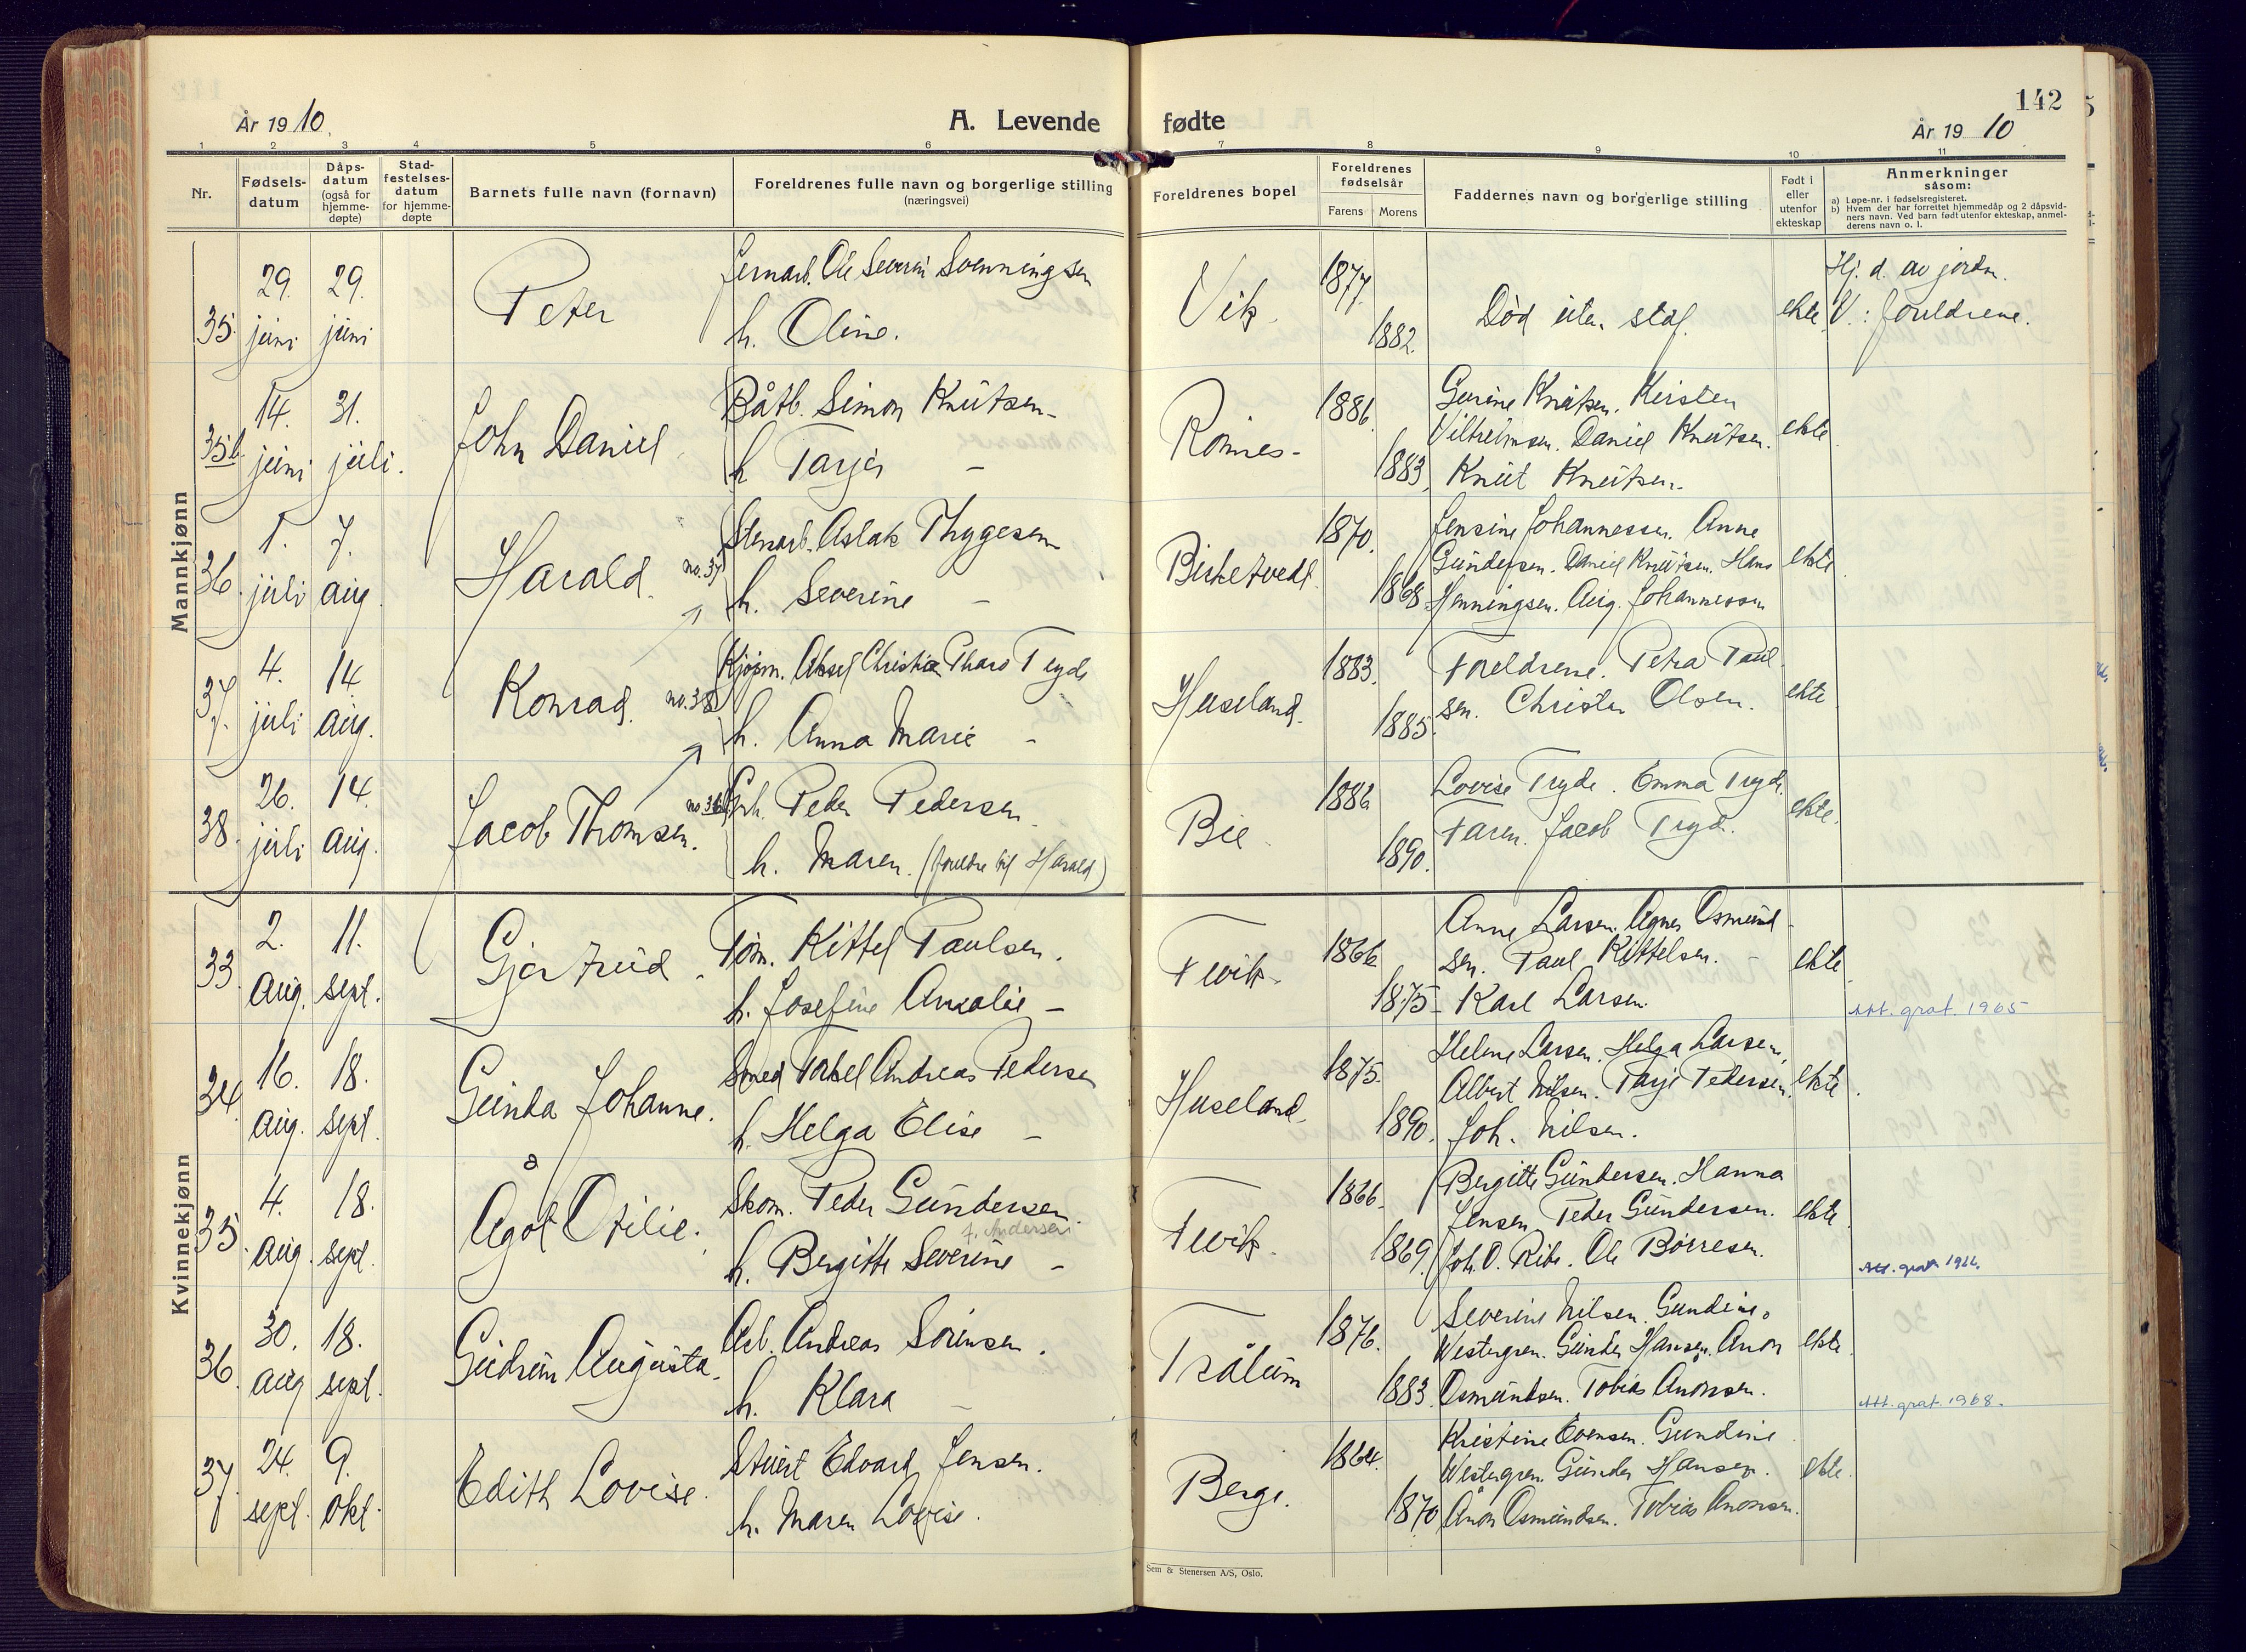 142
År 1910.
A. Levende fødte
År 1910
1 2 3 4 5 6 7 8 9 10 11
Nr.
Fødsels-
datum
Dåps-
datum
(også for
hjemme-
døpte)
Stad-
festelses-
datum
for hjemme-
døpte
Barnets fulle navn (fornavn)
Foreldrenes fulle navn og borgerlige stilling
(næringsvei)
Foreldrenes bopel
Foreldrenes
fødselsår
Farens Morens
Faddernes navn og borgerlige stilling
Født i
eller
utenfor
ekteskap
Anmerkninger
såsom:
a) Løpe-nr. i fødselsregisteret.
b) Hvem der har forrettet hjemmedåp og 2 dåpsvid-
ners navn. Ved barn født utenfor ekteskap, anmel-
derens navn o. l.
Mannkjønn
35. 29. juni 29. juni
Peter
Jernarb. Ole Severin Svenningsen
h. Oline.
Vik
1877.
1882.
Død uten stdf.
ekte
Hj. d. av jordm.
V.: foreldrene.
35b. 14. juni 31. juli.
John Daniel
Båtb. Simon Knutsen
h Tarjer -
Romes-
1886.
1883.
Gurine Knutsen. Kirsten
Vilhelmsen. Daniel Knutsen.
Knut Knutsen.
ekte
36. 1. juli 7. aug.
Harald. no. 37
Stenarb. Aslak Thygesen
h. Severine -
Birketvedt
1870.
1868.
Jensine Johannessen. Anne
Gundersen. Daniel Knutsen. Hans
Henningsen. Aug. Johannessen
ekte
37. 4. juli 14. aug.
Konrad. no. 38
Kjøpm. Aksel Christian Tharo Tryde
h. Anna Marie -
Huseland.
1883.
1885.
Foreldrene. Petra Paul-
sen. Christen Olsen.
ekte
38. 26. juli 14. aug.
Jacob Thomsen. no. 36
Peder Pedersen.
h. Maren. (foreldre til Harald)
Bie.
1886
1890.
Lovise Tryde. Emma Tryde.
Faren. Jacob Tryde.
ekte.
Kvinnekjønn
33. 2. aug. 11. sept.
Gjertrud.
Tøm. Kittel Paulsen.
h. Josefine Amalie -
Fevik
1866
1875
Anne Larsen. Agnes Osmund-
sen. Paul Kittelsen. -
Karl Larsen.
ekte
Att. grat. 1965
34. 16. aug. 18. sept.
Gunda Johanne.
Smed Torkel Andreas Pedersen
h. Helga Elise -
Huseland
1875.
1890.
Helene Larsen. Helga Larsen,
Albert Nilsen. Tarje Pedersen.
Joh. Nilsen.
ekte
35. 4. aug. 18. sept.
Ågot Otilie.
Skom. Peder Gundersen.
f. Andersen
h. Bergitte Severine -
Fevik.
1866.
1869.
Bergitte Gundersen. Hanna
Jensen. Peder Gundersen.
Joh. O. Ribe. Ole Børresen.
ekte
Att. grat 1966.
36. 30. aug 18. sept.
Gudrun Augusta.
Arb. Andreas Sørensen.
h. Klara -
Trålum
1876.
1883.
Severine Nilsen. Gundine
Westergren. Gunder Hansen. Anon
Osmundsen. Tobias Anonsen.
ekte
Att. grat. 1968.
37. 24. sept. 9. okt.
Edith Lovise.
Stuert Edvard Jensen.
h. Maren Lovise.
Berge.
1864.
1870
Kristine Evensen. Gundine
Westergren. Gunder Hansen.
Anon Osmundsen. Tobias Anonsen.
ekte.
Sem & Stenersen A/S, Oslo.